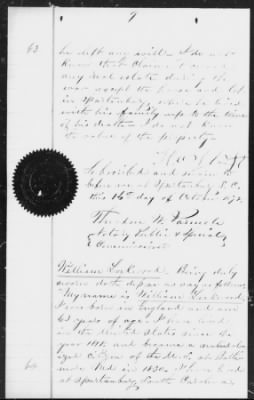 9
63
he left any will. I do not
know that Claimant owned
any real estate during the
war except the house and lot
in Spartanburg, where he lived
with his family up to the time
of his death. I do not know
the value of the property.
Subscribed and sworn to
before me at Spartanburg S.C.
this 16th day of October 1872
Notary Public & Special
Commissioner
William Lockwood. Being duly
sworn doth depose & say as follows,
"My name is William Lockwood,
I was born in England and am
63 years of age. I have lived
in the United States since the
year 1818, and became a natural-
ized citizen of the U.S. at Balti-
more Md. in 1830. I have lived
at Spartanburg South Carolina
64